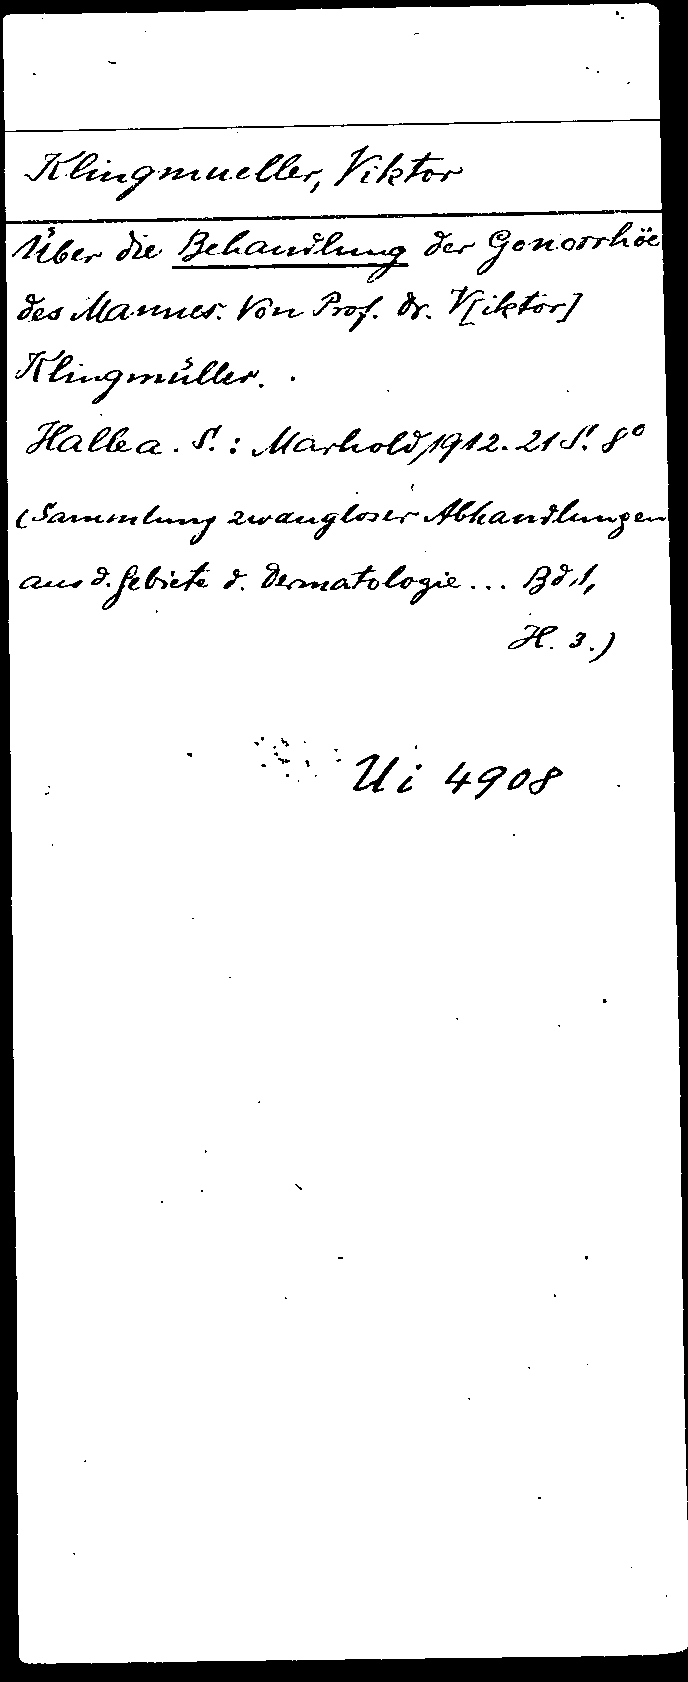 Klingmueller, Viktor
Über die Behandlung der Gonorrhöe
des Mannes. Von Prof. Dr. V[iktor]
Klingmüller.
Halle a. S.: Marhold, 1912. 21 S. 8°
(Sammlung zwangloser Abhandlungen
aus d. Gebiete d. Dermatologie... Bd. 1,
H. 3.)
Ui 4908